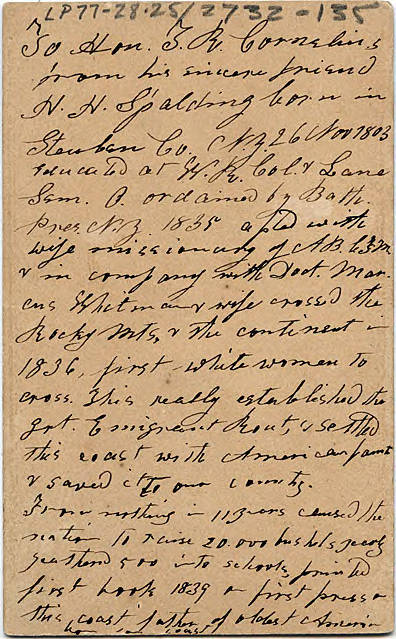 LP77-28.25/2732-135
To Hon. T. R. Cornelius
from his sincere friend
H. H. Spalding born in
Steuben Co. N.Y. 26 Nov 1803
educated at W. R. Col. & Lane
Sem. O. ordained by Bath
Pres. N.Y. 1835 apted with
wife missionary of A B C F M
& in company with Doct. Mar-
cus Whitman & wife crossed the
Rocky Mts, & the continent in
1836, first white women to
cross. This really established the
grt. Emigrant Rout, & settled
this coast with American
& saved it to our country.
From nothing in 11 years caused the
nation to raise 20.000 bushels
gathered 500 into schools, printed
first book 1839 on first press on
this coast father of oldest American